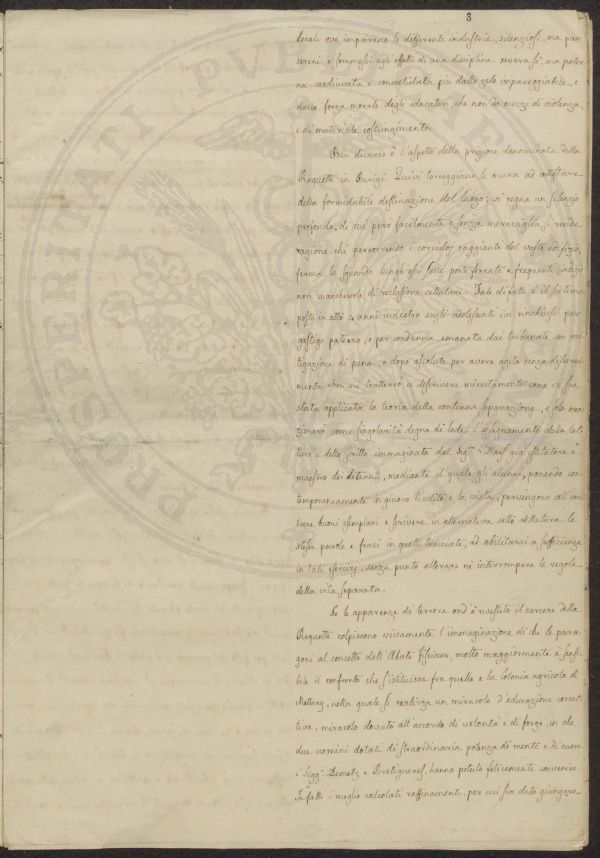 8
locali ove imparano le differenti industrie, silenziosi, ma pur
sereni, e sommessi agli effetti di una disciplina severa sì, ma pater
na, coadiuvata e convalidata più dallo zelo impareggiabile, e
dalla forza morale degli educatori, che non da mezzi di violenza,
e di materiale costringimento.
Ben diverso è l'aspetto della prigione denominata della
Roquette in Parigi. Quivi torreggiano le mura ad attestare
della formidabile destinazione del luogo; vi regna un silenzio
profondo, di cui però facilmente e senza meraviglia si rende
ragione chi percorrendo i corridoj raggiante del vasto edifizio,
ferma lo sguardo lungh'essi sulle porte ferrate e frequenti, indizio
non manchevole di reclusione cellulare. Tale di fatti è il sistema
posto in atto 2 anni indietro sugli adolescenti ivi rinchiusi per
gastigo paterno, o per condanna emanata dai tribunali con mi
tigazione di pena, o dopo assolute per avere agito senza discerni
mento. Non mi tratterrò a descrivere minutamente come vi sia
stata applicata la teoria della continua separazione, e solo men
zionerò come singolarità degna di lode l'insegnamento della let
tura e dello scritto immaginato dal Sigr. già istitutore e
maestro dei detenuti, mediante il quale gli alunni, ponendo con
temporaneamente in giuoco l'udito e la vista, pervengono coll'imi
tare buoni esemplari e scrivere in alternativa sotto dettatura le
stesse parole e frasi in quelli tracciate, ad abilitarsi a sufficienza
in tali esercizj, senza punto alterare nè interrompere le regole
della vita separata.
Se le apparenze di terrore ond'è rivestito il carcere della
Roquette colpiscono vivamente l'immaginazione di chi le para
goni al concetto dell'Abate Fissiaux, molto maggiormente è sensi
bile il confronto che s'istituisca fra quello e la Colonia agricola di
Mettray, nella quale si realizza un miracolo d'educazione corret
tiva, miracolo dovuto all'accordo di volontà e di forze, in che
due uomini dotati di straordinaria potenza di mente e di cuore
i Sigg.ri Demetz e Bretigneres, hanno potuto felicemente convenire.
Infatti i meglio calcolati raffinamenti, per cui sia dato giungere
PROSPERITATI PVBLICAE